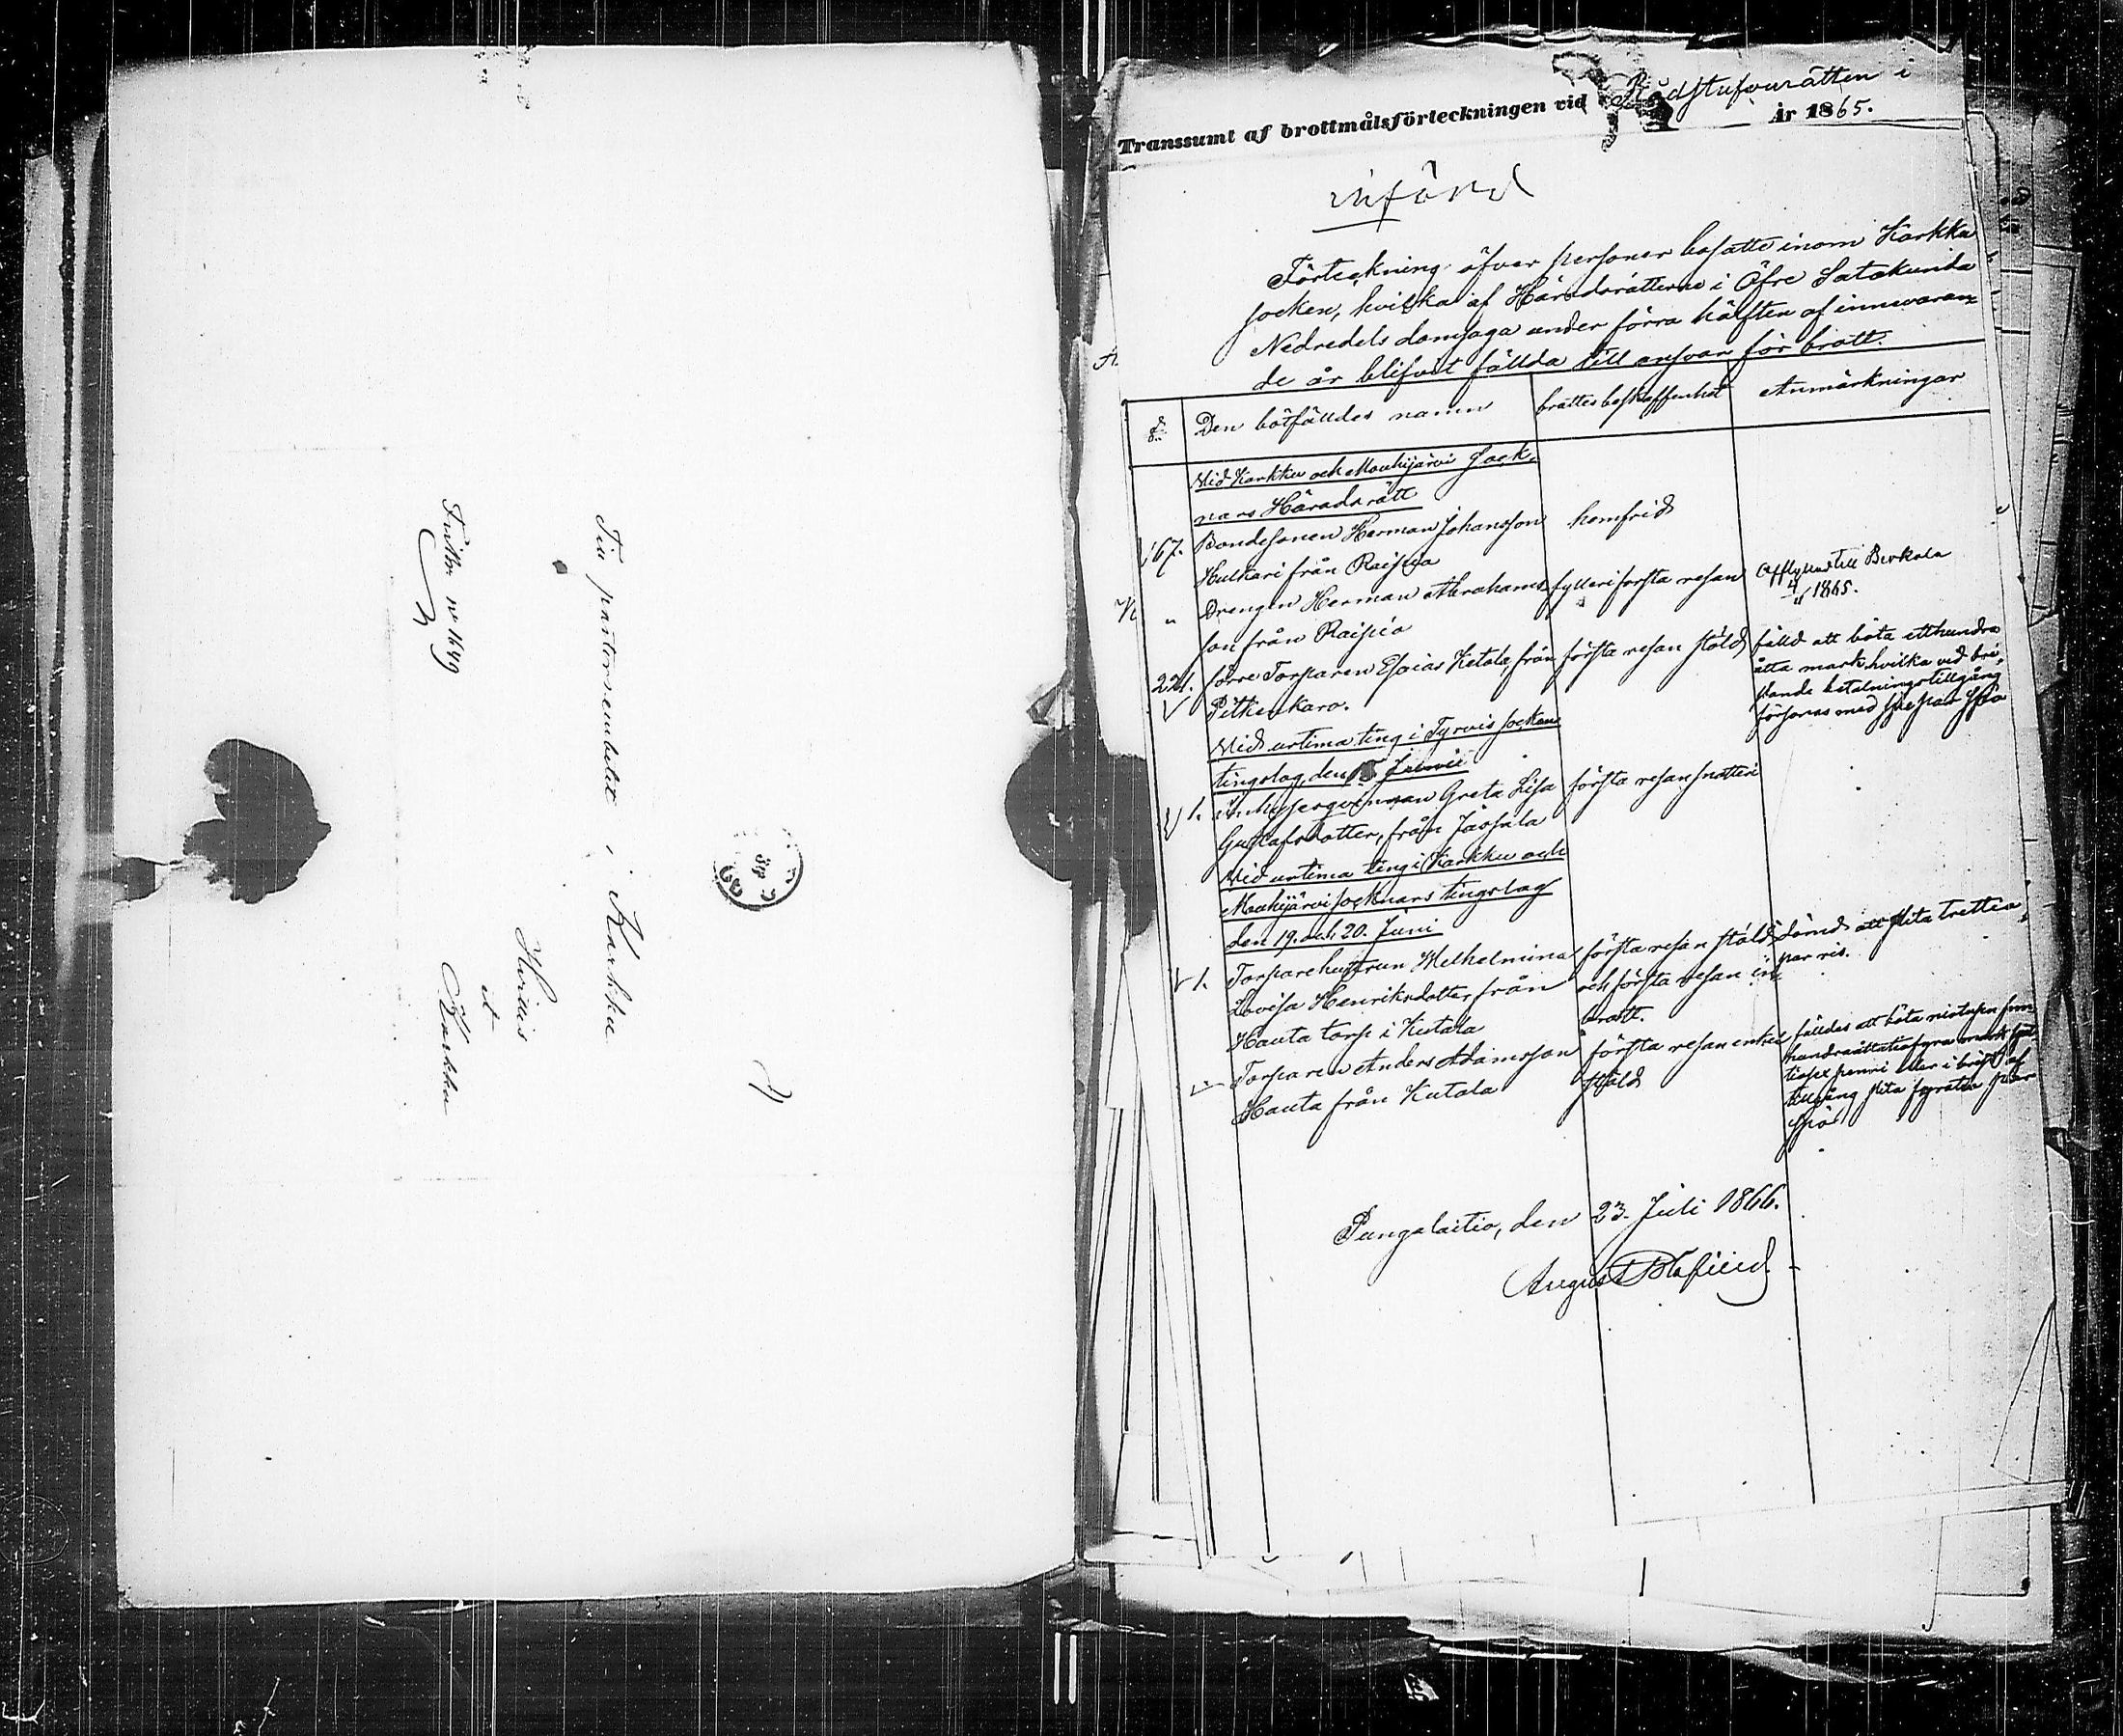 Till pastorsembetet i Karkku
Hvittis
et
Karkku
Transsumt af brottmålsförteckningen vid Rådstufvurätten i
År 1865.
införd
Förteckning öfver personer bosatte inom Karkku
socken, hvilka af Häradsrätterne i Öfre Satakunda
Nedredels domsaga under förra hälften af innevaran=
de år blifvit fällda till ansvar för brott.
§. Den bötfälldes namn brottets beskaffenhet Anmärkningar
Vid Karkku och Mouhijärvi sock=
nars Häradsrätt
167. Bondesonen Herman Johansson hemfrid
Hulkari från Raipio
" Drengen Herman Abrahams= fylleri första resan Afflyttad till Birkala
son från Raipio 1865.
221. förre Torparen Esaias Ketola, från första resan stöld fälld att böta etthundra
Pitkenkaro. åtta mark hvilka vid bri=
stande betalningstillgång
försonas med sju par spö
Vid urtima ting i Tyrvis sockens
tingslag, den 15 Junii
1. Inhysesqvinnan Greta Lisa första resan snatteri
Gustafsdotter, från
Vid urtima ting i Karkku och
Mouhijärvi socknars tingslag
den 19. och 20. Juni
1. Torparehustrun Wilhelmina första resan stöld dömd att slita trettio
Lovisa Henriksdotter från och första resan in= par ris.
Hauta torp i Kutala brott.
Torparen Anders Adamsson första resan enkel fälldes att böta niotusen fem
Hauta från Kutala stöld hundraåttatiofyra mark
tiosex penni eller i brist af
tillgång slita fyratio par
spö
Pungalaitio, den 23. Juli 1866.
August Blåfield